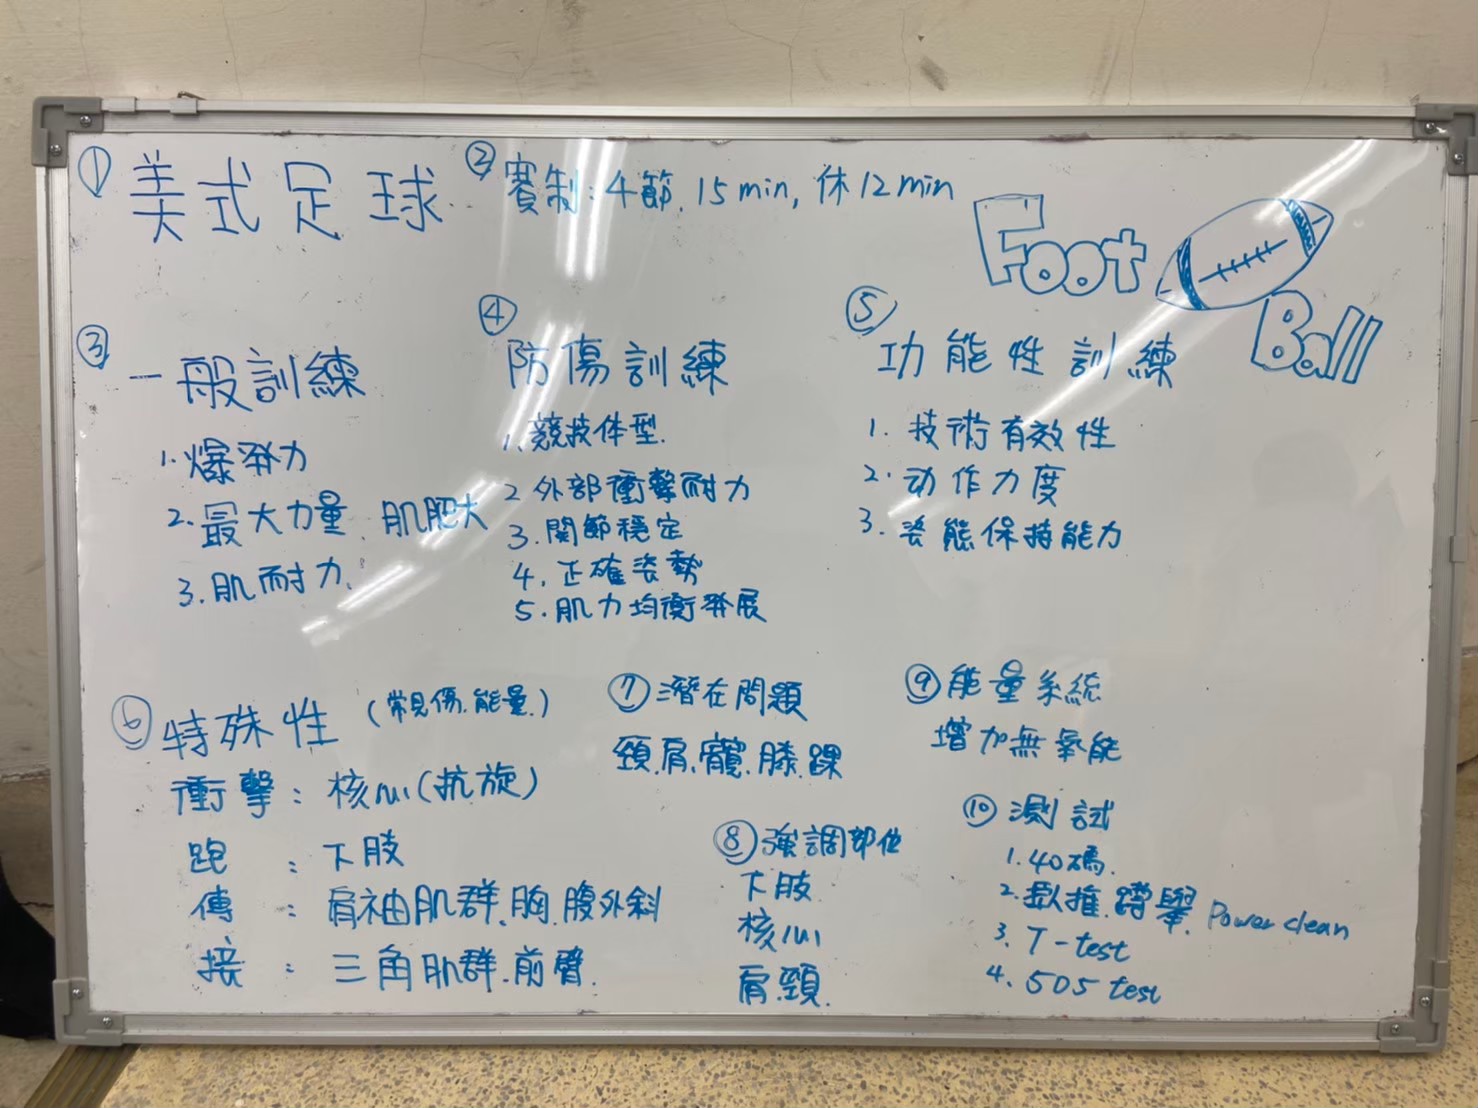 ① 美式足球
② 賽制：4節. 15min, 休12min
Foot
Ball
③ 一般訓練
1. 爆発力
2. 最大力量、肌肥大
3. 肌耐力.
④ 防傷訓練
1. 競技体型.
2 外部衝擊耐力
3. 関節穩定
4. 正確姿勢
5. 肌力均衡発展
⑤ 功能性訓練
1. 技術有效性
2. 动作力度
3. 姿態保持能力
⑥ 特殊性 (常見傷.能量.)
衝擊：核心(抗旋)
跑：下肢
傳：肩袖肌群.胸.腹外斜
接：三角肌群.前臂.
⑦ 潛在問題
頸.肩.髖.膝.踝
⑧ 強調部位
下肢
核心
肩.頸.
⑨ 能量系統
增加無氧能
⑩ 測試
1. 40碼.
2. 臥推.蹲舉. Power clean
3. T-test
4. 505 test